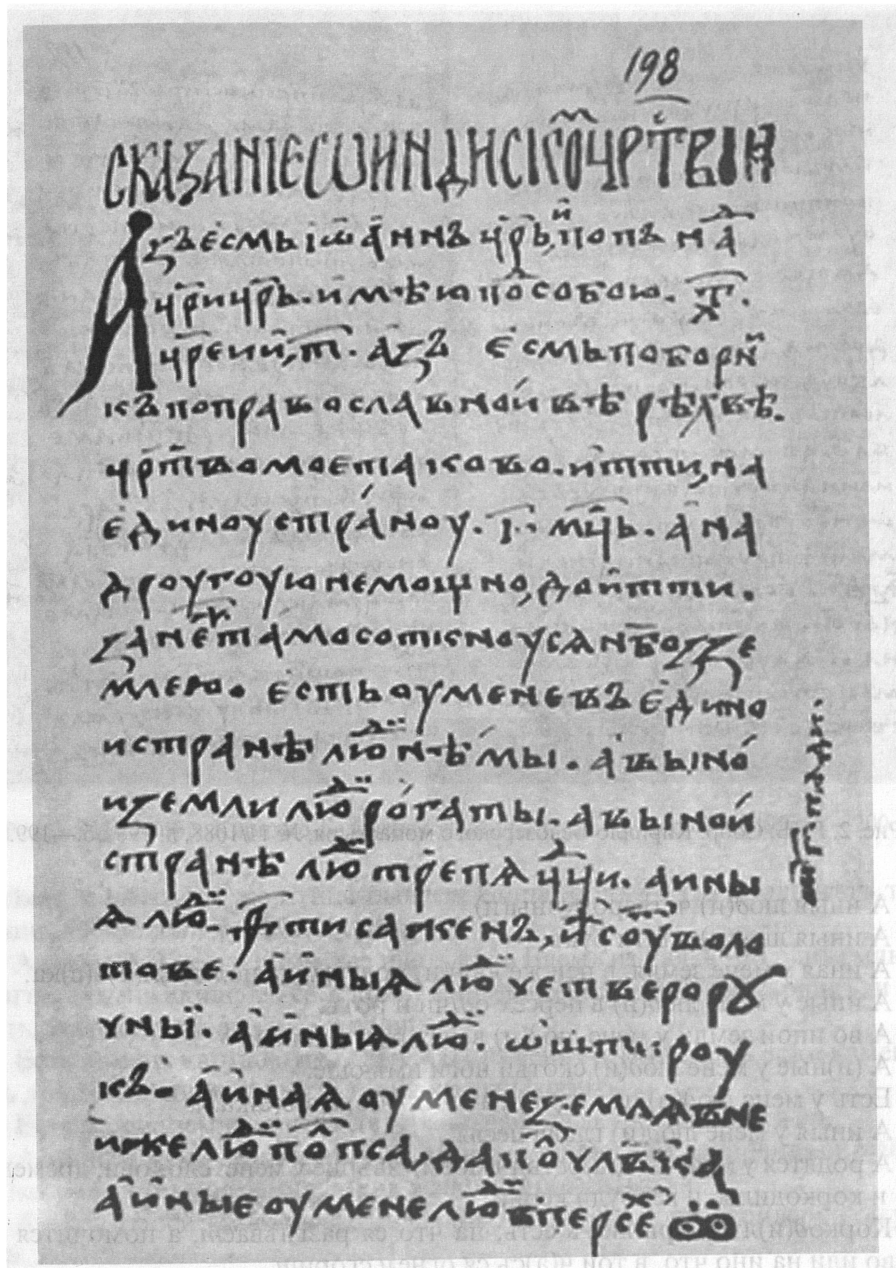 198
СКАЗАНІЕ Ѡ ИНДИСКОⷨ ЦРⷭ҇ТВІИ
Азъ єсмь іѡаннъ цр҃ь и҆ попъ наⷣ
цр҃и цр҃ь. имѣю поⷣ собою. ҂г҃.
цр҃еи и, т҃. азъ єсмь поборнⷩ
къ по православнои вѣрѣ хв҃ѣ.
црⷭ҇тво мое таково. ити, на
єдиноу страноу. і҃. мц҃ь. а на
дроугоую немощно, доити.
занеⷤ тамо соткноусѧ нб҃о зъ зе
млею. єсть оу мене въ єдино
и странѣ люⷣ нѣмы. а въ ино
и земли люⷣ рогаты. а въ инои
странѣ люⷣ трепѧцци. а ины
ѧ люⷣ. ѳ҃ти саженъ, иⷤ соуⷮ воло
тове. а иныѧ люⷣ четвероро
учны. а иныѧ люⷣ. ѡ шти роу
къ. а инаѧ оу мене землѧ в не
иже люⷣ поⷧ пса, да поⷧ члв҃ка,
а иные оу мене люⷣ в персеⷯ ꙭ